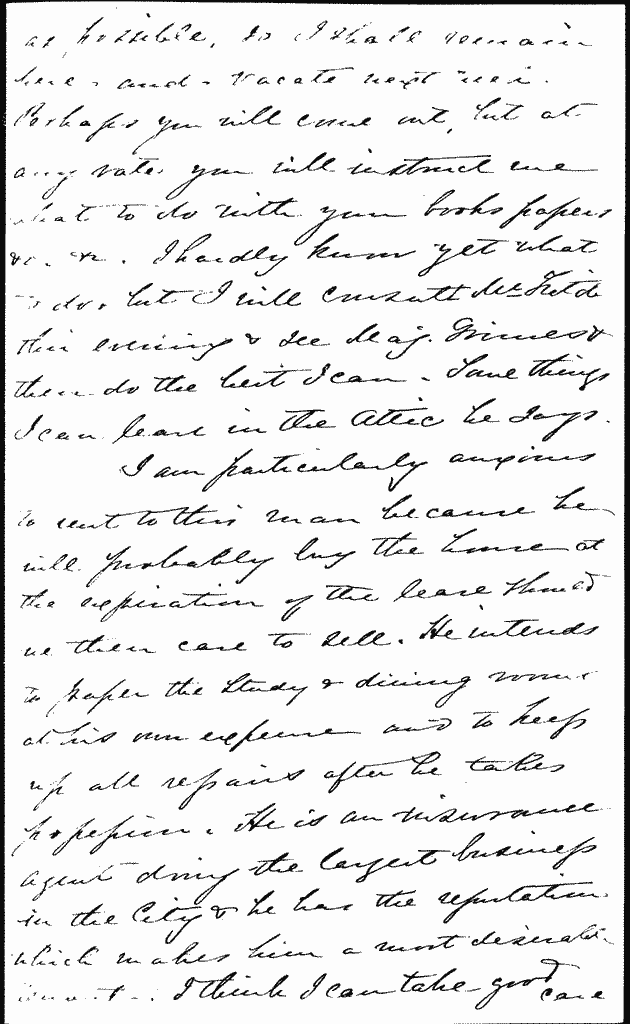 as possible, so I shall remain
here - and - vacate next
Perhaps you will come out, but at
any rate, you will instruct me
what to do with your books papers
&c. &c. I hardly know yet what
to do, but I will consult Mr
this evening & see Maj. Grimes &
then do the best I can. Some things
I can leave in the Attic he says.
I am particularly anxious
to rent to this man because he
will probably buy the house at
the expiration of the lease should
we then care to sell. He intends
to paper the Study & dining room
at his own expense and to keep
up all repairs after he takes
possession. He is an insurance
agent doing the largest business
in the City & he has the reputation
which makes him a most desirable
tenant. I think I can take good
care